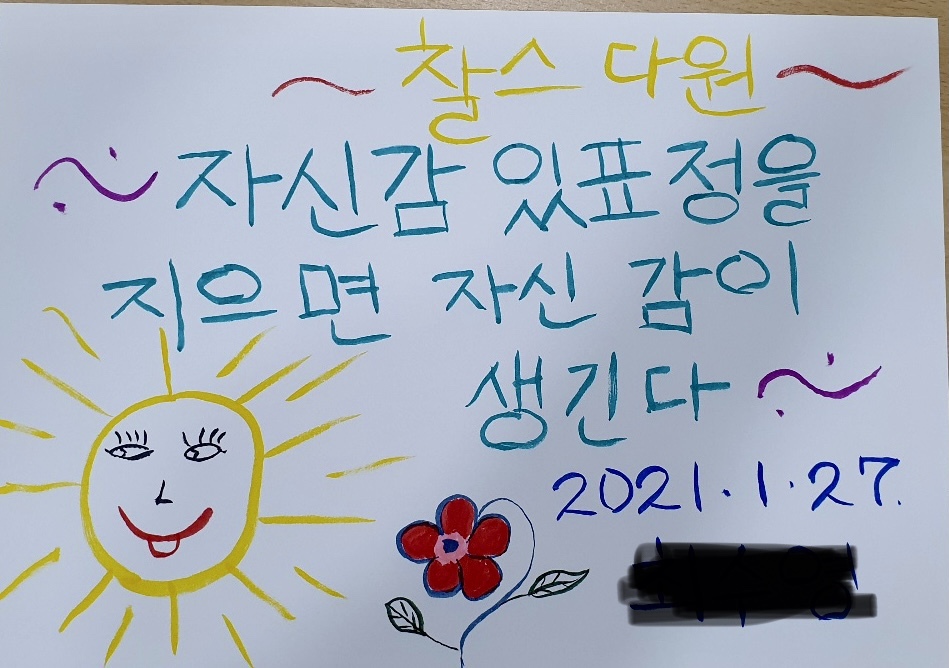 ~ 찰스 다윈 ~
자신감 있표정을
지으면 자신 감이
생긴다
2021.1.27.